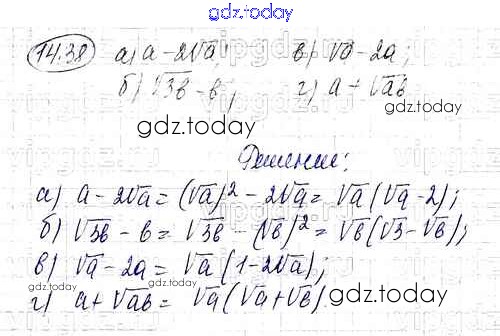 gdz.today
14.38 а) a - 2√a; в) √a - 2a;
б) √3b - b; г) a + √ab
gdz.today
gdz.today
Решение:
а) a - 2√a = (√a)² - 2√a = √a(√a - 2);
б) √3b - b = √3b - (√b)² = √b(√3 - √b);
в) √a - 2a = √a(1 - 2√a);
г) a + √ab = √a(√a + √b).
gdz.today
gdz.today